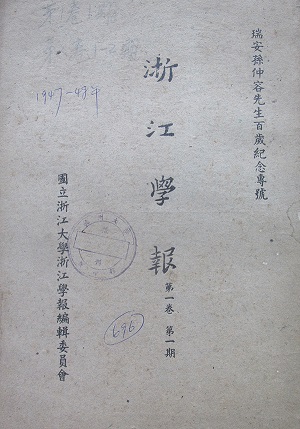 瑞安孫仲容先生百歲紀念專號
浙江學報
第一卷 第一期
國立浙江大學浙江學報編輯委員會
1947-48年
696